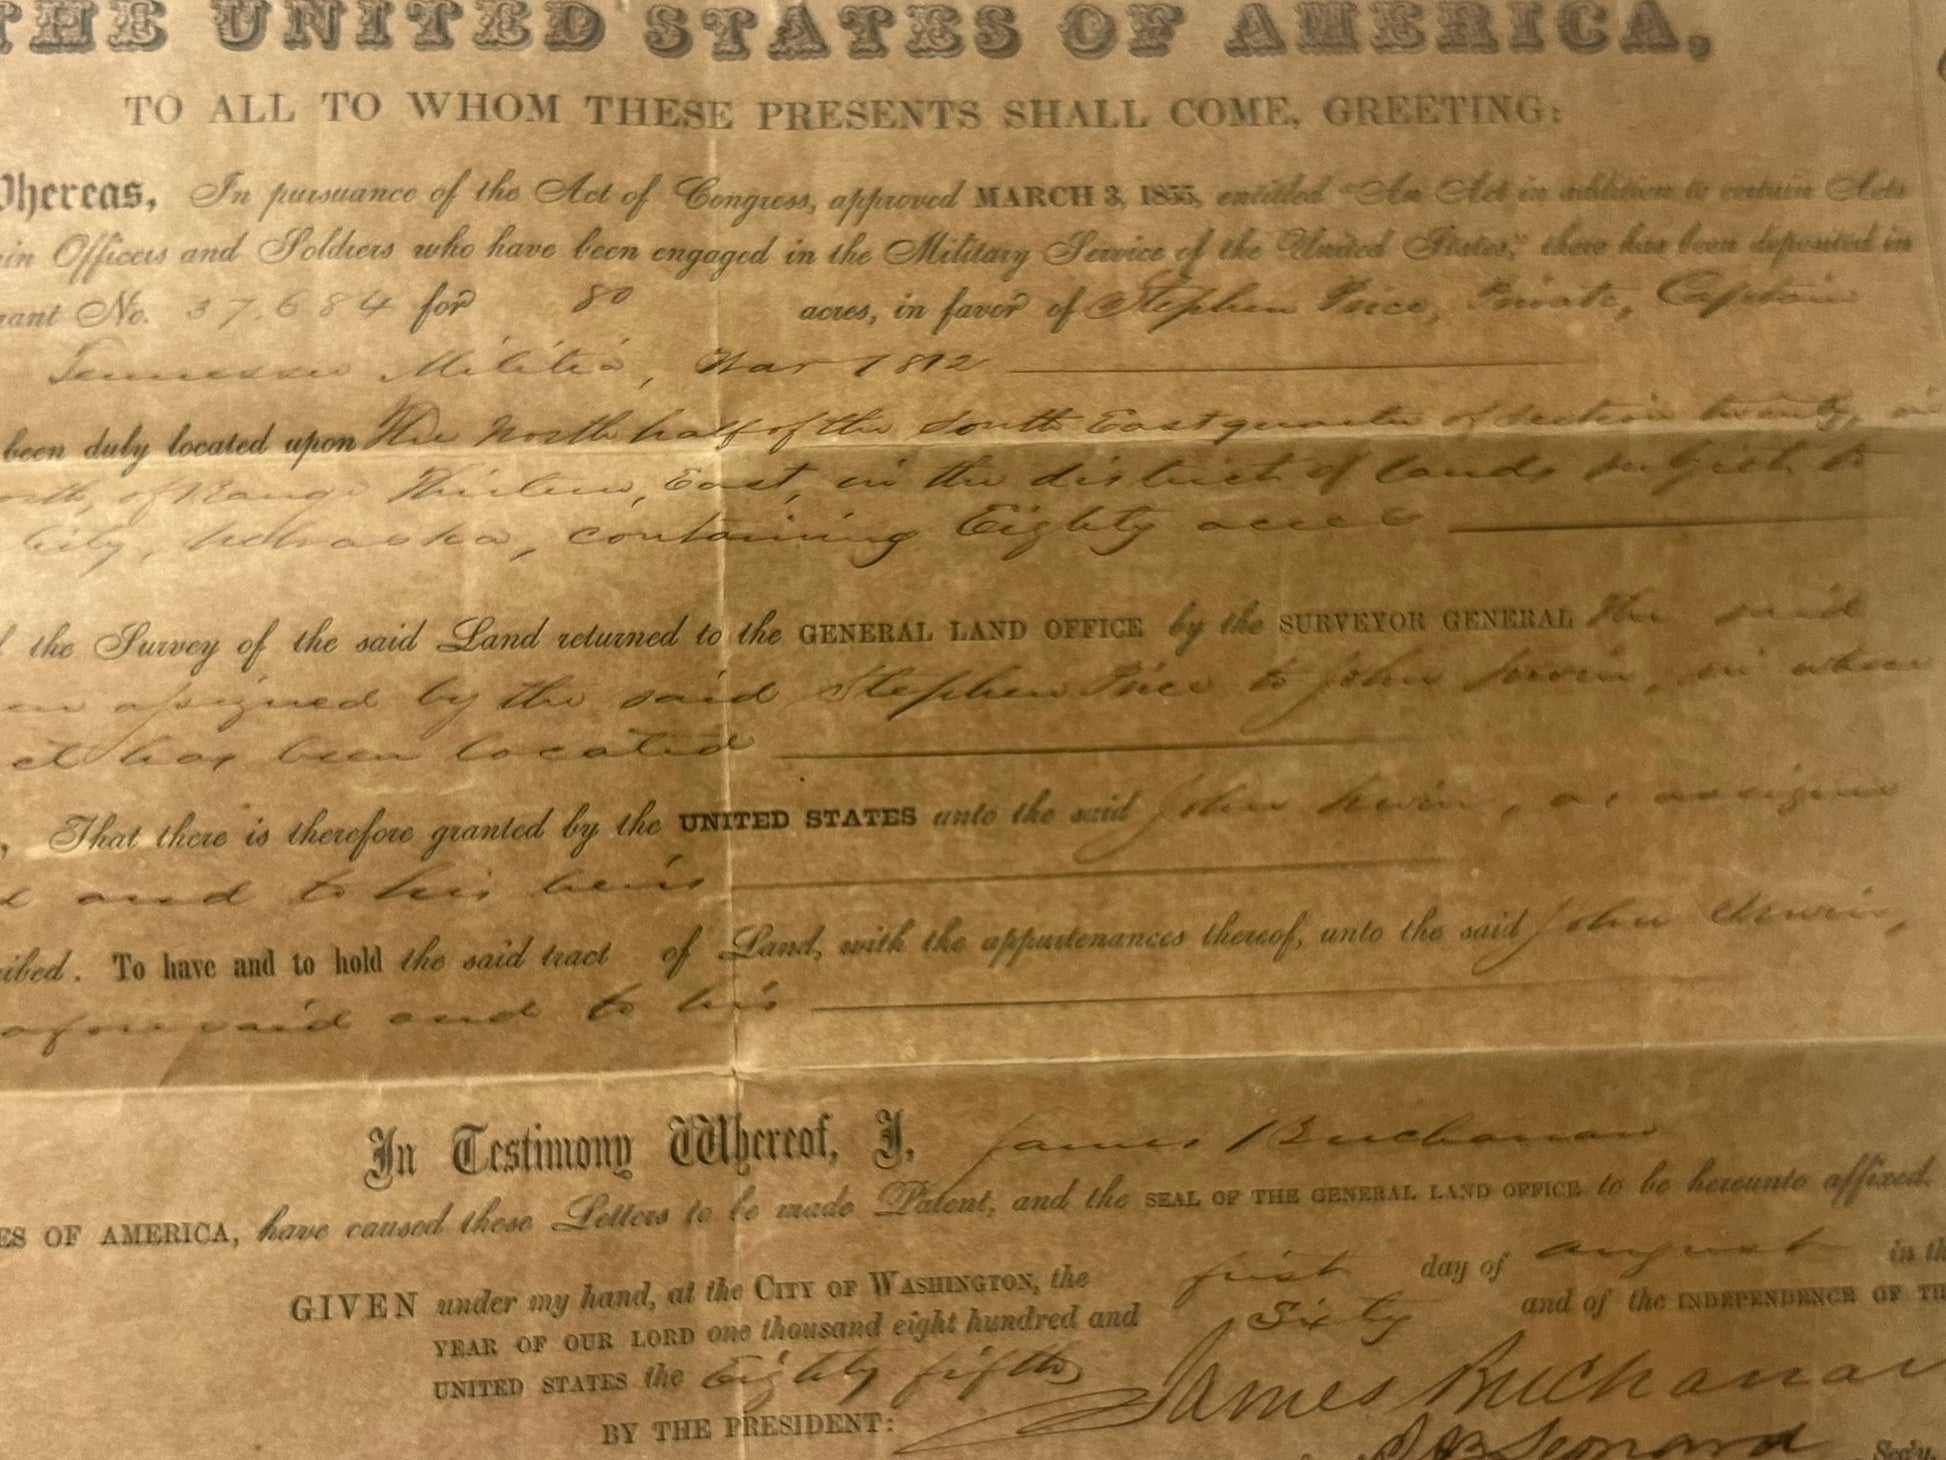 THE UNITED STATES OF AMERICA,
TO ALL TO WHOM THESE PRESENTS SHALL COME, GREETING:
Whereas, In pursuance of the Act of Congress, approved MARCH 3, 1855, entitled "An Act in addition to certain Acts
in Officers and Soldiers who have been engaged in the Military Service of the United States," there has been deposited in
rant No. 37.684 for 80 acres, in favor of Stephen Price, Private, Captain
Tennessee Militia, War 1812
been duly located upon The North half of the South East quarter of section twenty, in
orth, of Range Thirteen, East, in the district of lands subject to
City, Nebraska, containing Eighty acres
the Survey of the said Land returned to the GENERAL LAND OFFICE by the SURVEYOR GENERAL the said
en assigned by the said Stephen Price to John Irwin, in whose
it has been located
, That there is therefore granted by the UNITED STATES unto the said John Irwin, as assignee
d and to his heirs
ibed. To have and to hold the said tract of Land, with the appurtenances thereof, unto the said John Irwin,
aforesaid and to his
In Testimony Whereof, I, James Buchanan
ES OF AMERICA, have caused these Letters to be made Patent, and the SEAL OF THE GENERAL LAND OFFICE to be hereunto affixed.
GIVEN under my hand, at the CITY OF WASHINGTON, the first day of August in th
YEAR OF OUR LORD one thousand eight hundred and Sixty and of the INDEPENDENCE OF TH
UNITED STATES the Eighty fifth
BY THE PRESIDENT: James Buchanan
Leonard Sec'y.